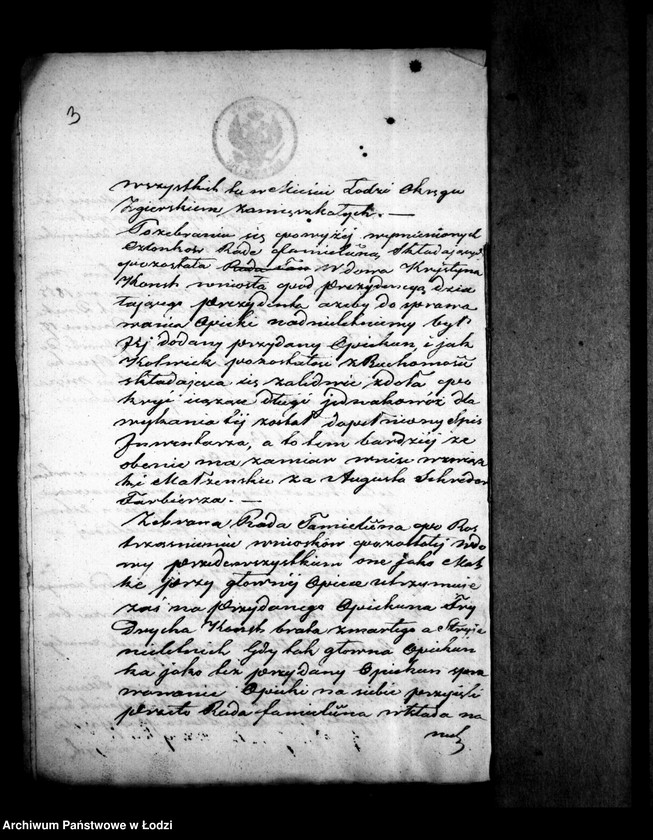 3
wszystkich tu w Mieście Łodzi Okręgu
Zgierskiem zamieszkałych. —
Po zebraniu się powyżej wymienionych
Członków Rade familiina składających
pozostała Rada Fam Wdowa Krystyna
Konst wniosła pod prezydencyą dzia
łającego Prezydenta ażeby do sprawo
wania Opieki nad nieletniemy był
jej dodany przydany Opiekun, i jak
Kolwiek pozostałość z Ruchomości
składająca się zaledwie zdoła po
kryć ciążące długi jednakowoż dla
wykazania tej został dopełniony Spis
Inwentarza, a to tem bardziej że
obecnie ma zamiar wniść w związ
ki Małżenskie za Augusta Schreder
Farbierza. —
Zebrana Rada Familiina po Roz
trząśnieniu wniosków pozostałej Wdo
wy przedewszystkiem onę jako Mat
kę przy głownej Opiece utrzymuje
zaś na Przydanego Opiekuna Fry
Drycha Konst brata zmarłego a Stryja
nieletnich Gdy tak głowna Opiekun
ka jako też przydany Opiekun spra
wowanie Opieki na siebie przyjęli
przeto Rada familiina wkłada na
nich
Archiwum Państwowe w Łodzi